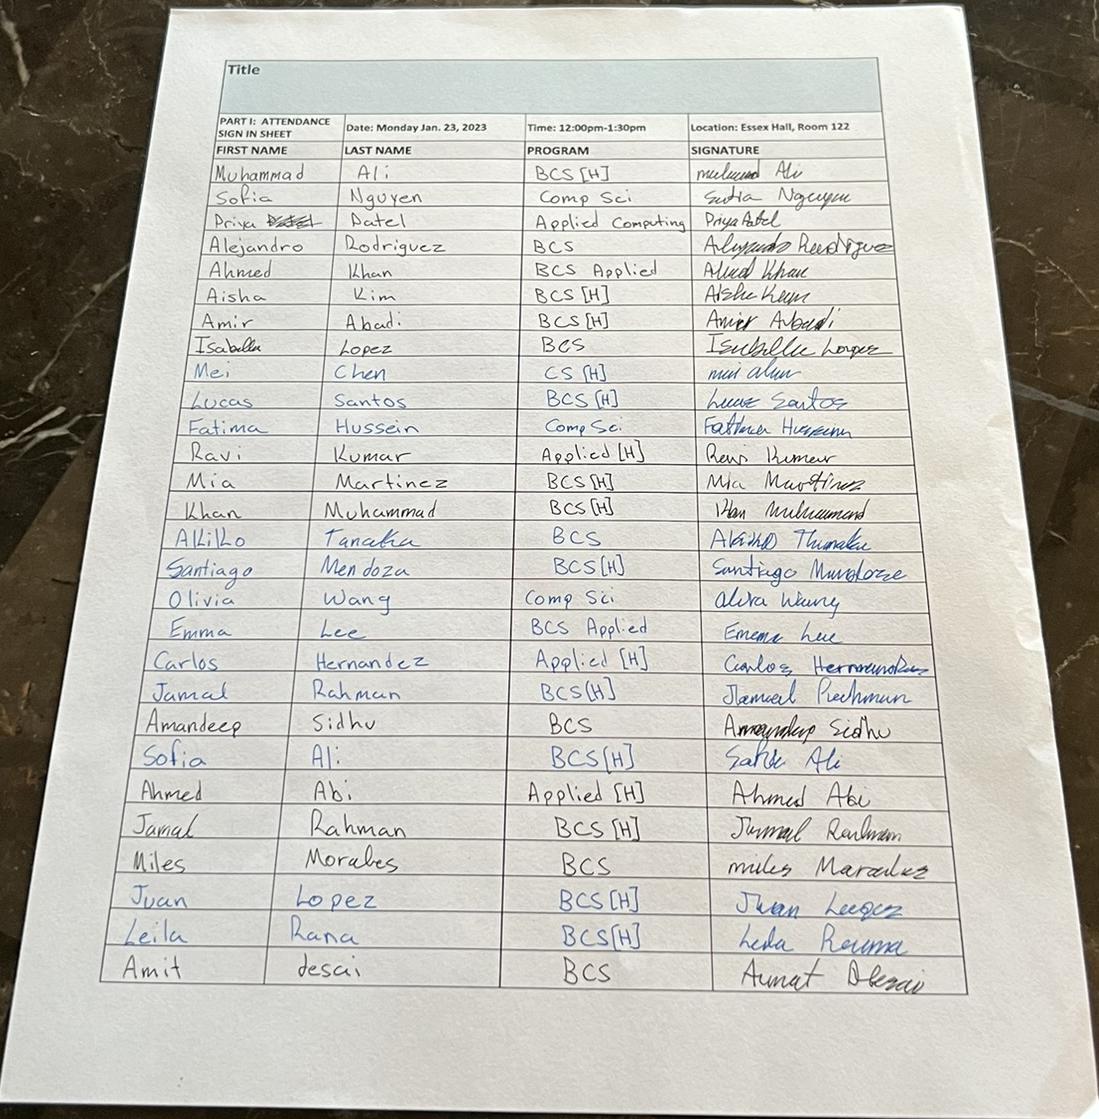 Title
PART I: ATTENDANCE SIGN IN SHEET Date: Monday Jan. 23, 2023 Time: 12:00pm-1:30pm Location: Essex Hall, Room 122
FIRST NAME LAST NAME PROGRAM SIGNATURE
Muhammad Ali BCS [H] Ali
Sofia Nguyen Comp Sci Nguyen
Priya Patel Applied Computing Priya Patel
Alejandro Rodriguez BCS Rodriguez
Ahmed Khan BCS Applied Khan
Aisha Kim BCS [H] Aisha
Amir Abadi BCS [H] Amir Abadi
Isabella Lopez BCS Isabella Lopez
Mei Chen CS [H]
Lucas Santos BCS [H] Lucas Santos
Fatima Hussein Comp Sci Fatima
Ravi Kumar Applied [H] Kumar
Mia Martinez BCS [H] Mia Martinez
Khan Muhammad BCS [H]
Akiko Tanaka BCS
Santiago Mendoza BCS[H] Santiago
Olivia Wang Comp Sci Wang
Emma Lee BCS Applied Lee
Carlos Hernandez Applied [H] Carlos
Jamal Rahman BCS[H]
Amandeep Sidhu BCS Sidhu
Sofia Ali BCS[H] Ali
Ahmed Abi Applied [H] Ahmed Abi
Jamal Rahman BCS [H]
Miles Morales BCS miles
Juan Lopez BCS [H] Juan
Leila Rana BCS[H]
Amit desai BCS